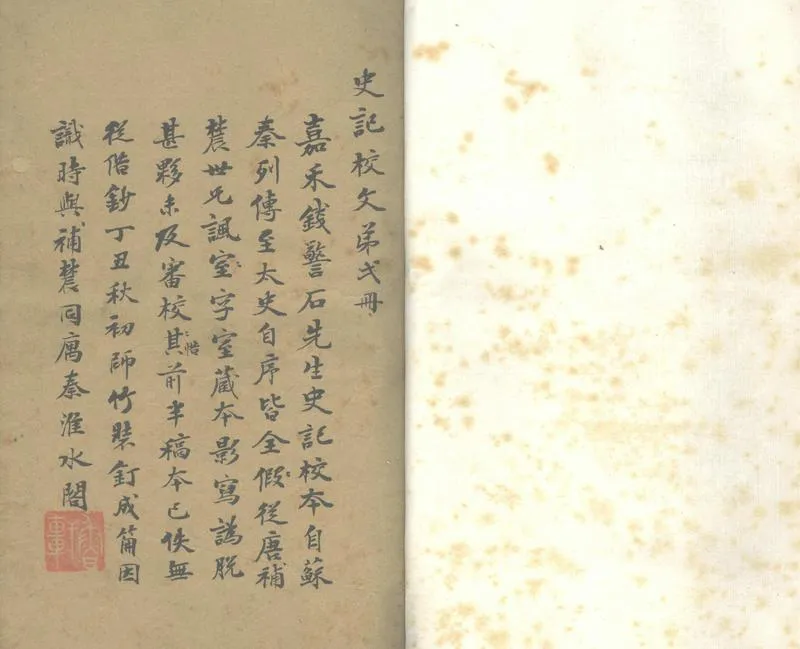 史記校文弟弍冊
嘉禾錢警石先生史記校本自蘇
秦列傳至太史自序皆全假從唐補
蓑世兄諷字室藏本影寫譌脫
甚夥未及審校惜其前半稿本已佚無
從借鈔丁丑秋初師竹裝釘成篇因
識時與補蓑同寓秦淮水閣